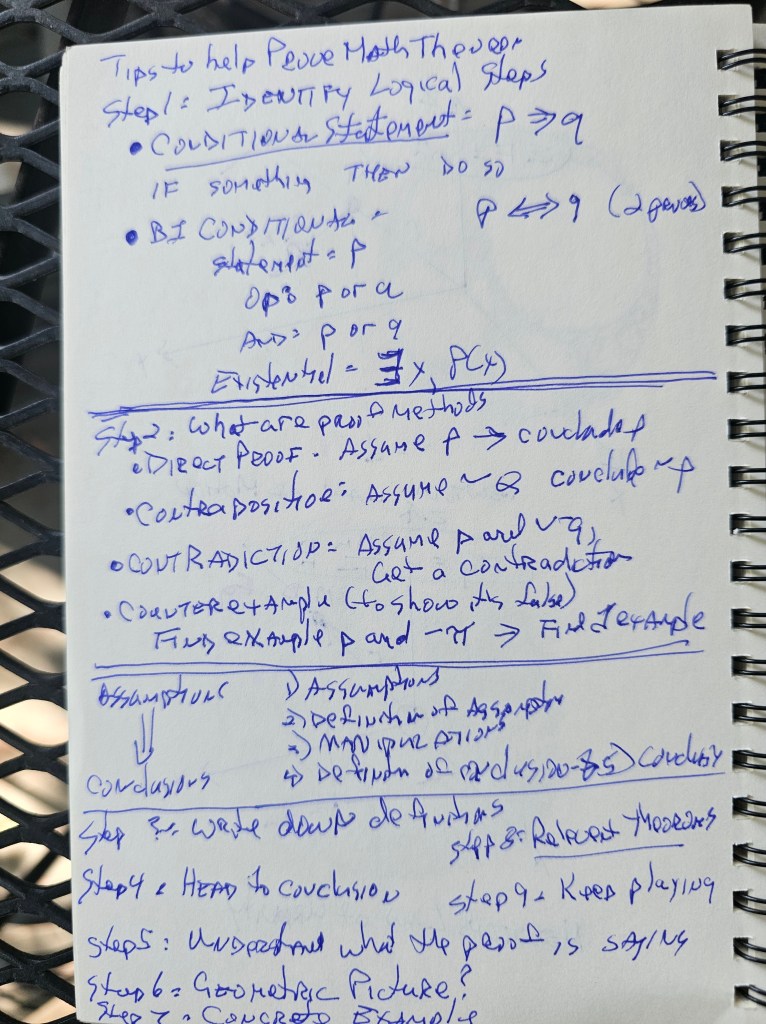 Tips to help Prove Math Theorem
Step 1: IDENTIFY Logical Steps
• CONDITIONAL Statement = P ⇒ q
IF something THEN DO SO
• BI CONDITIONAL = P ⇔ q (2 proofs)
statement = P
Op: p or q
AND: p or q
Existential = ∃ x, P(x)
Step 2: What are proof methods
• DIRECT PROOF. Assume p → conclude p
• Contraposition: Assume ~ Q conclude ~ p
• CONTRADICTION: Assume p and ~q,
Get a contradiction
• Counterexample (to show its false)
FIND example p and → Find 1 example
Assumptions
1) Assumptions
2) Definition of Assumption
3) Manipulations
⇓
Conclusions
4) Definition of conclusion 5) Conclusion
Step 3: Write down definitions
Step 8: Relevent theorems
Step 4: HEAD to conclusion
Step 9: Keep playing
Step 5: Understand what the proof is saying
Step 6: Geometric Picture?
Step 7: Concrete Example